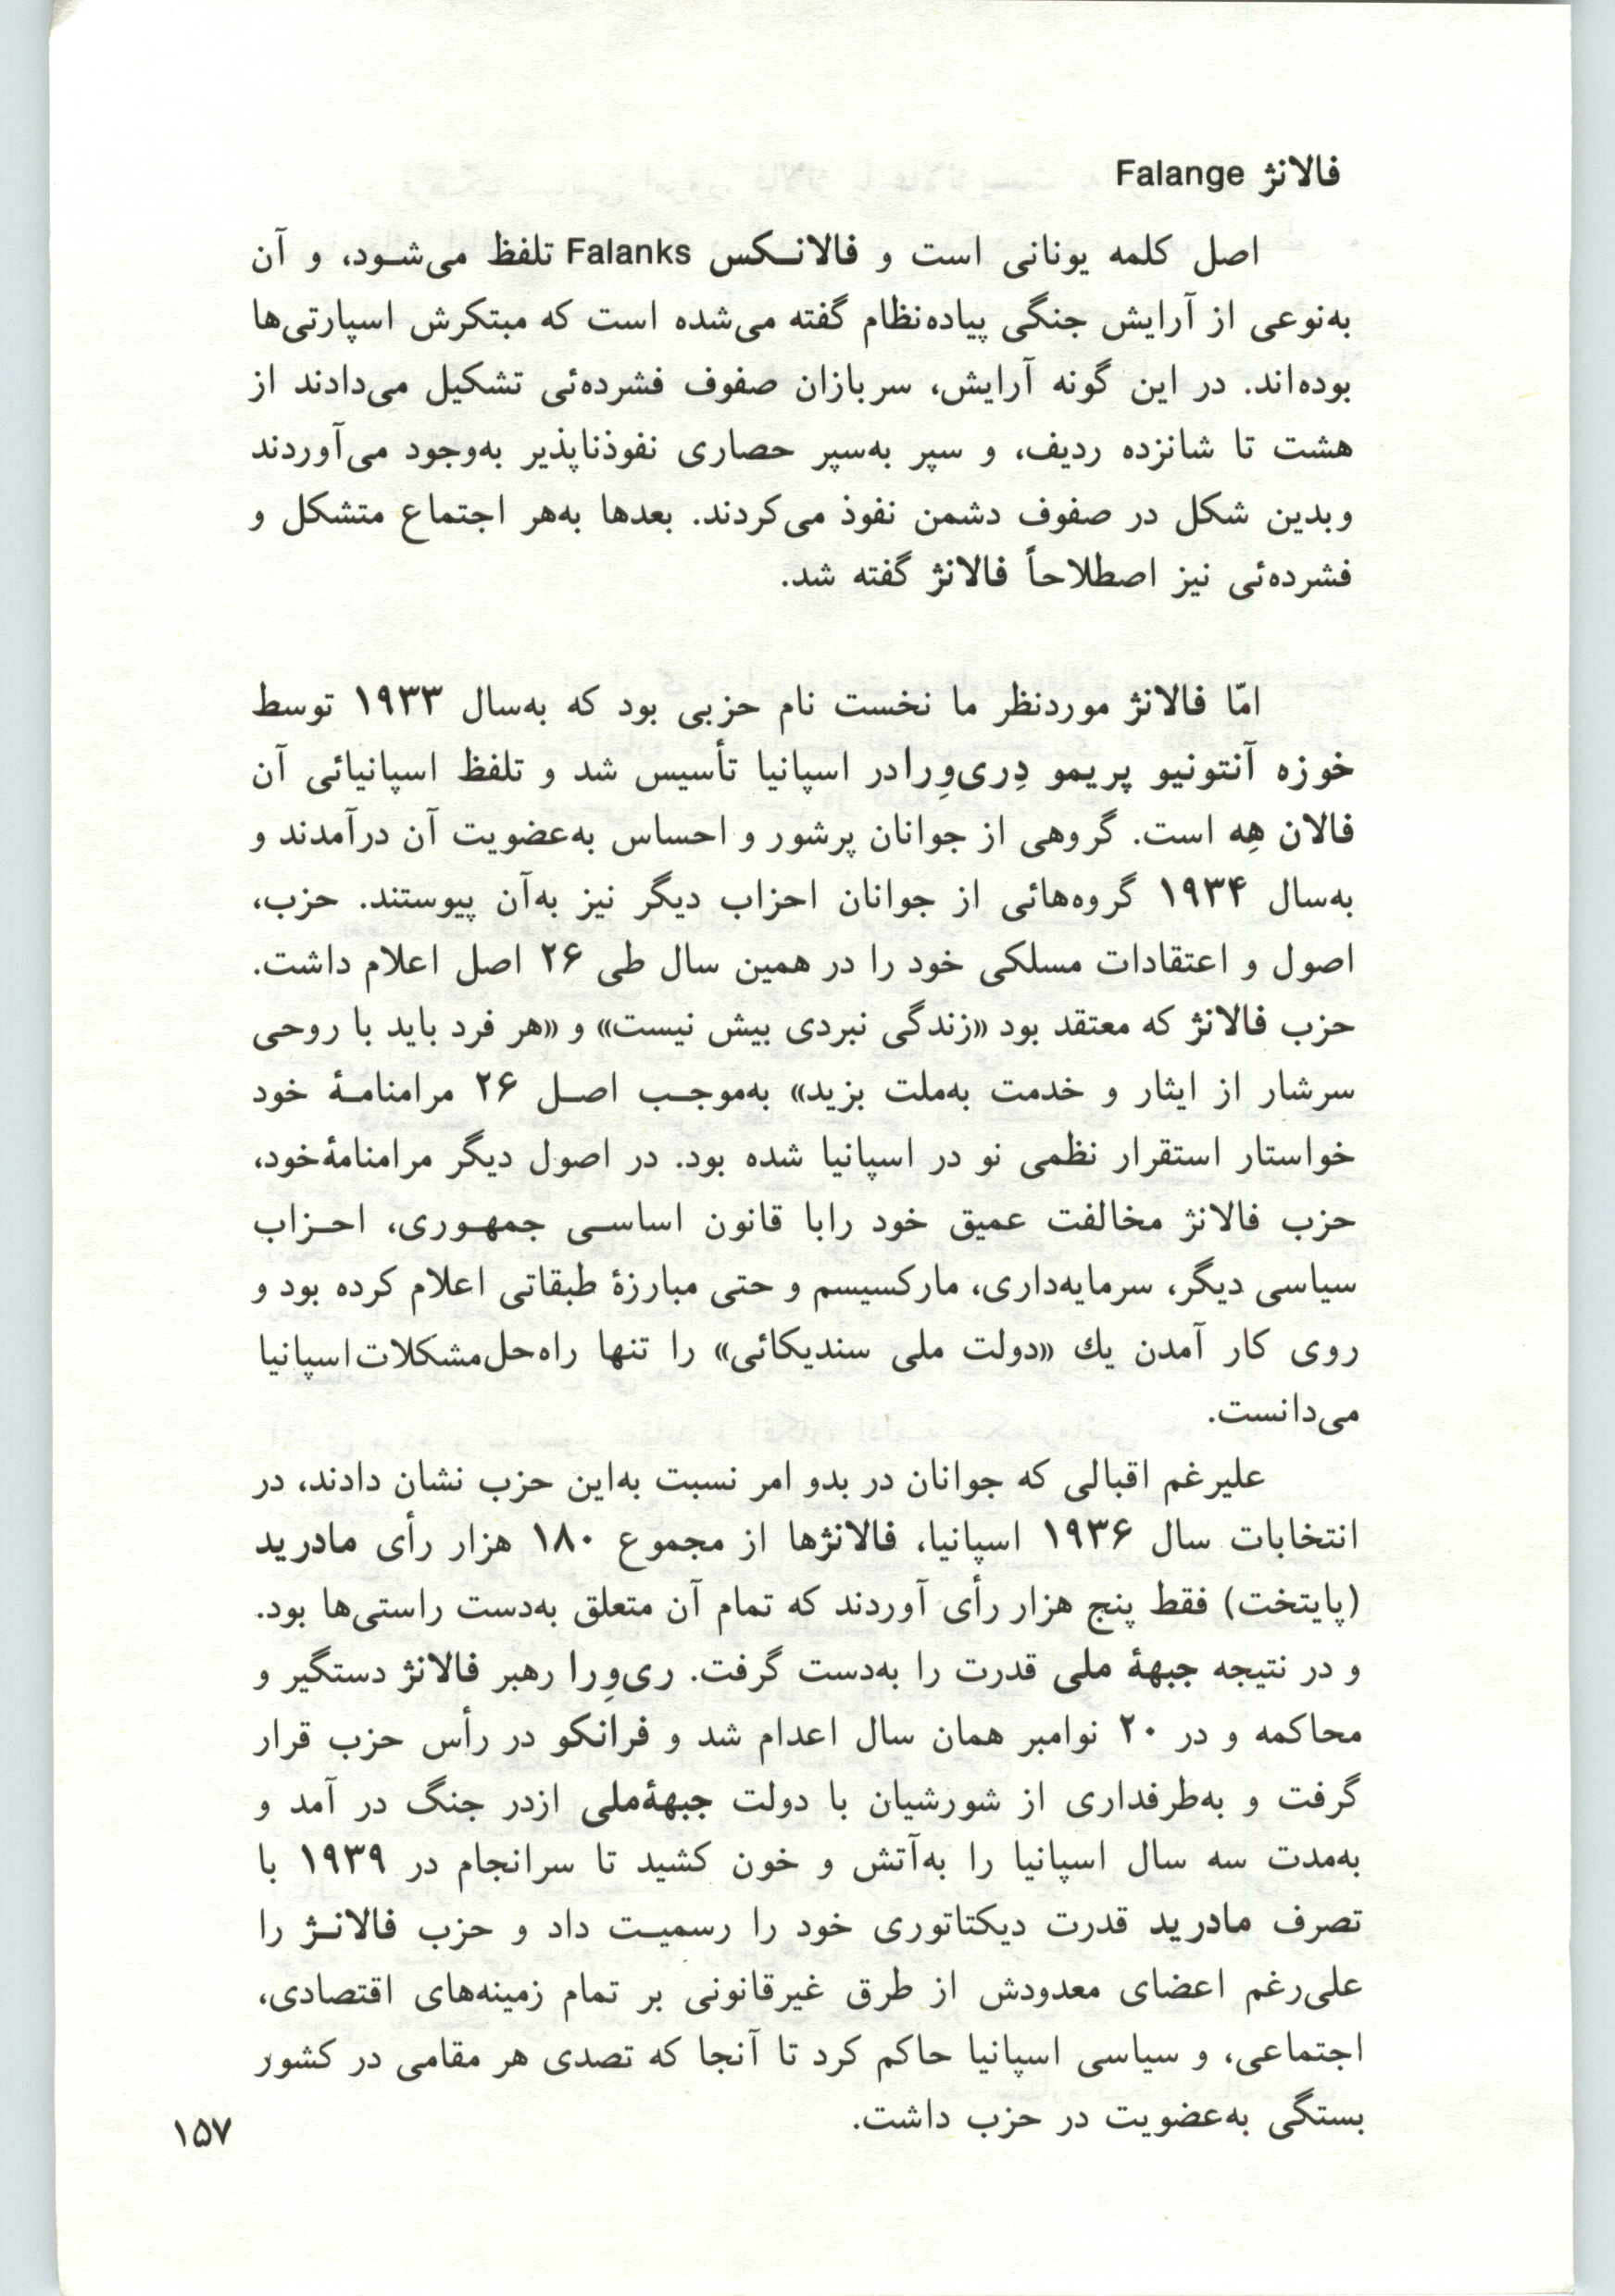 فالانژ Falange
اصل کلمه یونانی است و فالانکس Falanks تلفظ می‌شود، و آن
به‌نوعی از آرایش جنگی پیاده‌نظام گفته می‌شده است که مبتکرش اسپارتی‌ها
بوده‌اند. در این گونه آرایش، سربازان صفوف فشرده‌ئی تشکیل می‌دادند از
هشت تا شانزده ردیف، و سپر به‌سپر حصاری نفوذناپذیر به‌وجود می‌آوردند
وبدین شکل در صفوف دشمن نفوذ می‌کردند. بعدها به‌هر اجتماع متشکل و
فشرده‌ئی نیز اصطلاحاً فالانژ گفته شد.
امّا فالانژ موردنظر ما نخست نام حزبی بود که به‌سال ۱۹۳۳ توسط
خوزه آنتونیو پریمو دِری‌وِرا در اسپانیا تأسیس شد و تلفظ اسپانیائی آن
فالان هِه است. گروهی از جوانان پرشور و احساس به‌عضویت آن درآمدند و
به‌سال ۱۹۳۴ گروه‌هائی از جوانان احزاب دیگر نیز به‌آن پیوستند. حزب،
اصول و اعتقادات مسلکی خود را در همین سال طی ۲۶ اصل اعلام داشت.
حزب فالانژ که معتقد بود «زندگی نبردی بیش نیست» و «هر فرد باید با روحی
سرشار از ایثار و خدمت به‌ملت بزید» به‌موجب اصل ۲۶ مرامنامهٔ خود
خواستار استقرار نظمی نو در اسپانیا شده بود. در اصول دیگر مرامنامهٔ‌خود،
حزب فالانژ مخالفت عمیق خود رابا قانون اساسی جمهوری، احزاب
سیاسی دیگر، سرمایه‌داری، مارکسیسم و حتی مبارزهٔ طبقاتی اعلام کرده بود و
روی کار آمدن یك «دولت ملی سندیکائی» را تنها راه‌حل‌مشکلات‌اسپانیا
می‌دانست.
علیرغم اقبالی که جوانان در بدو امر نسبت به‌این حزب نشان دادند، در
انتخابات سال ۱۹۳۶ اسپانیا، فالانژها از مجموع ۱۸۰ هزار رأی مادرید
(پایتخت) فقط پنج هزار رأی آوردند که تمام آن متعلق به‌دست راستی‌ها بود.
و در نتیجه جبههٔ ملی قدرت را به‌دست گرفت. ری‌وِرا رهبر فالانژ دستگیر و
محاکمه و در ۲۰ نوامبر همان سال اعدام شد و فرانکو در رأس حزب قرار
گرفت و به‌طرفداری از شورشیان با دولت جبههٔ‌ملی ازدر جنگ در آمد و
به‌مدت سه سال اسپانیا را به‌آتش و خون کشید تا سرانجام در ۱۹۳۹ با
تصرف مادرید قدرت دیکتاتوری خود را رسمیت داد و حزب فالانژ را
علی‌رغم اعضای معدودش از طرق غیرقانونی بر تمام زمینه‌های اقتصادی،
اجتماعی، و سیاسی اسپانیا حاکم کرد تا آنجا که تصدی هر مقامی در کشور
بستگی به‌عضویت در حزب داشت.
۱۵۷